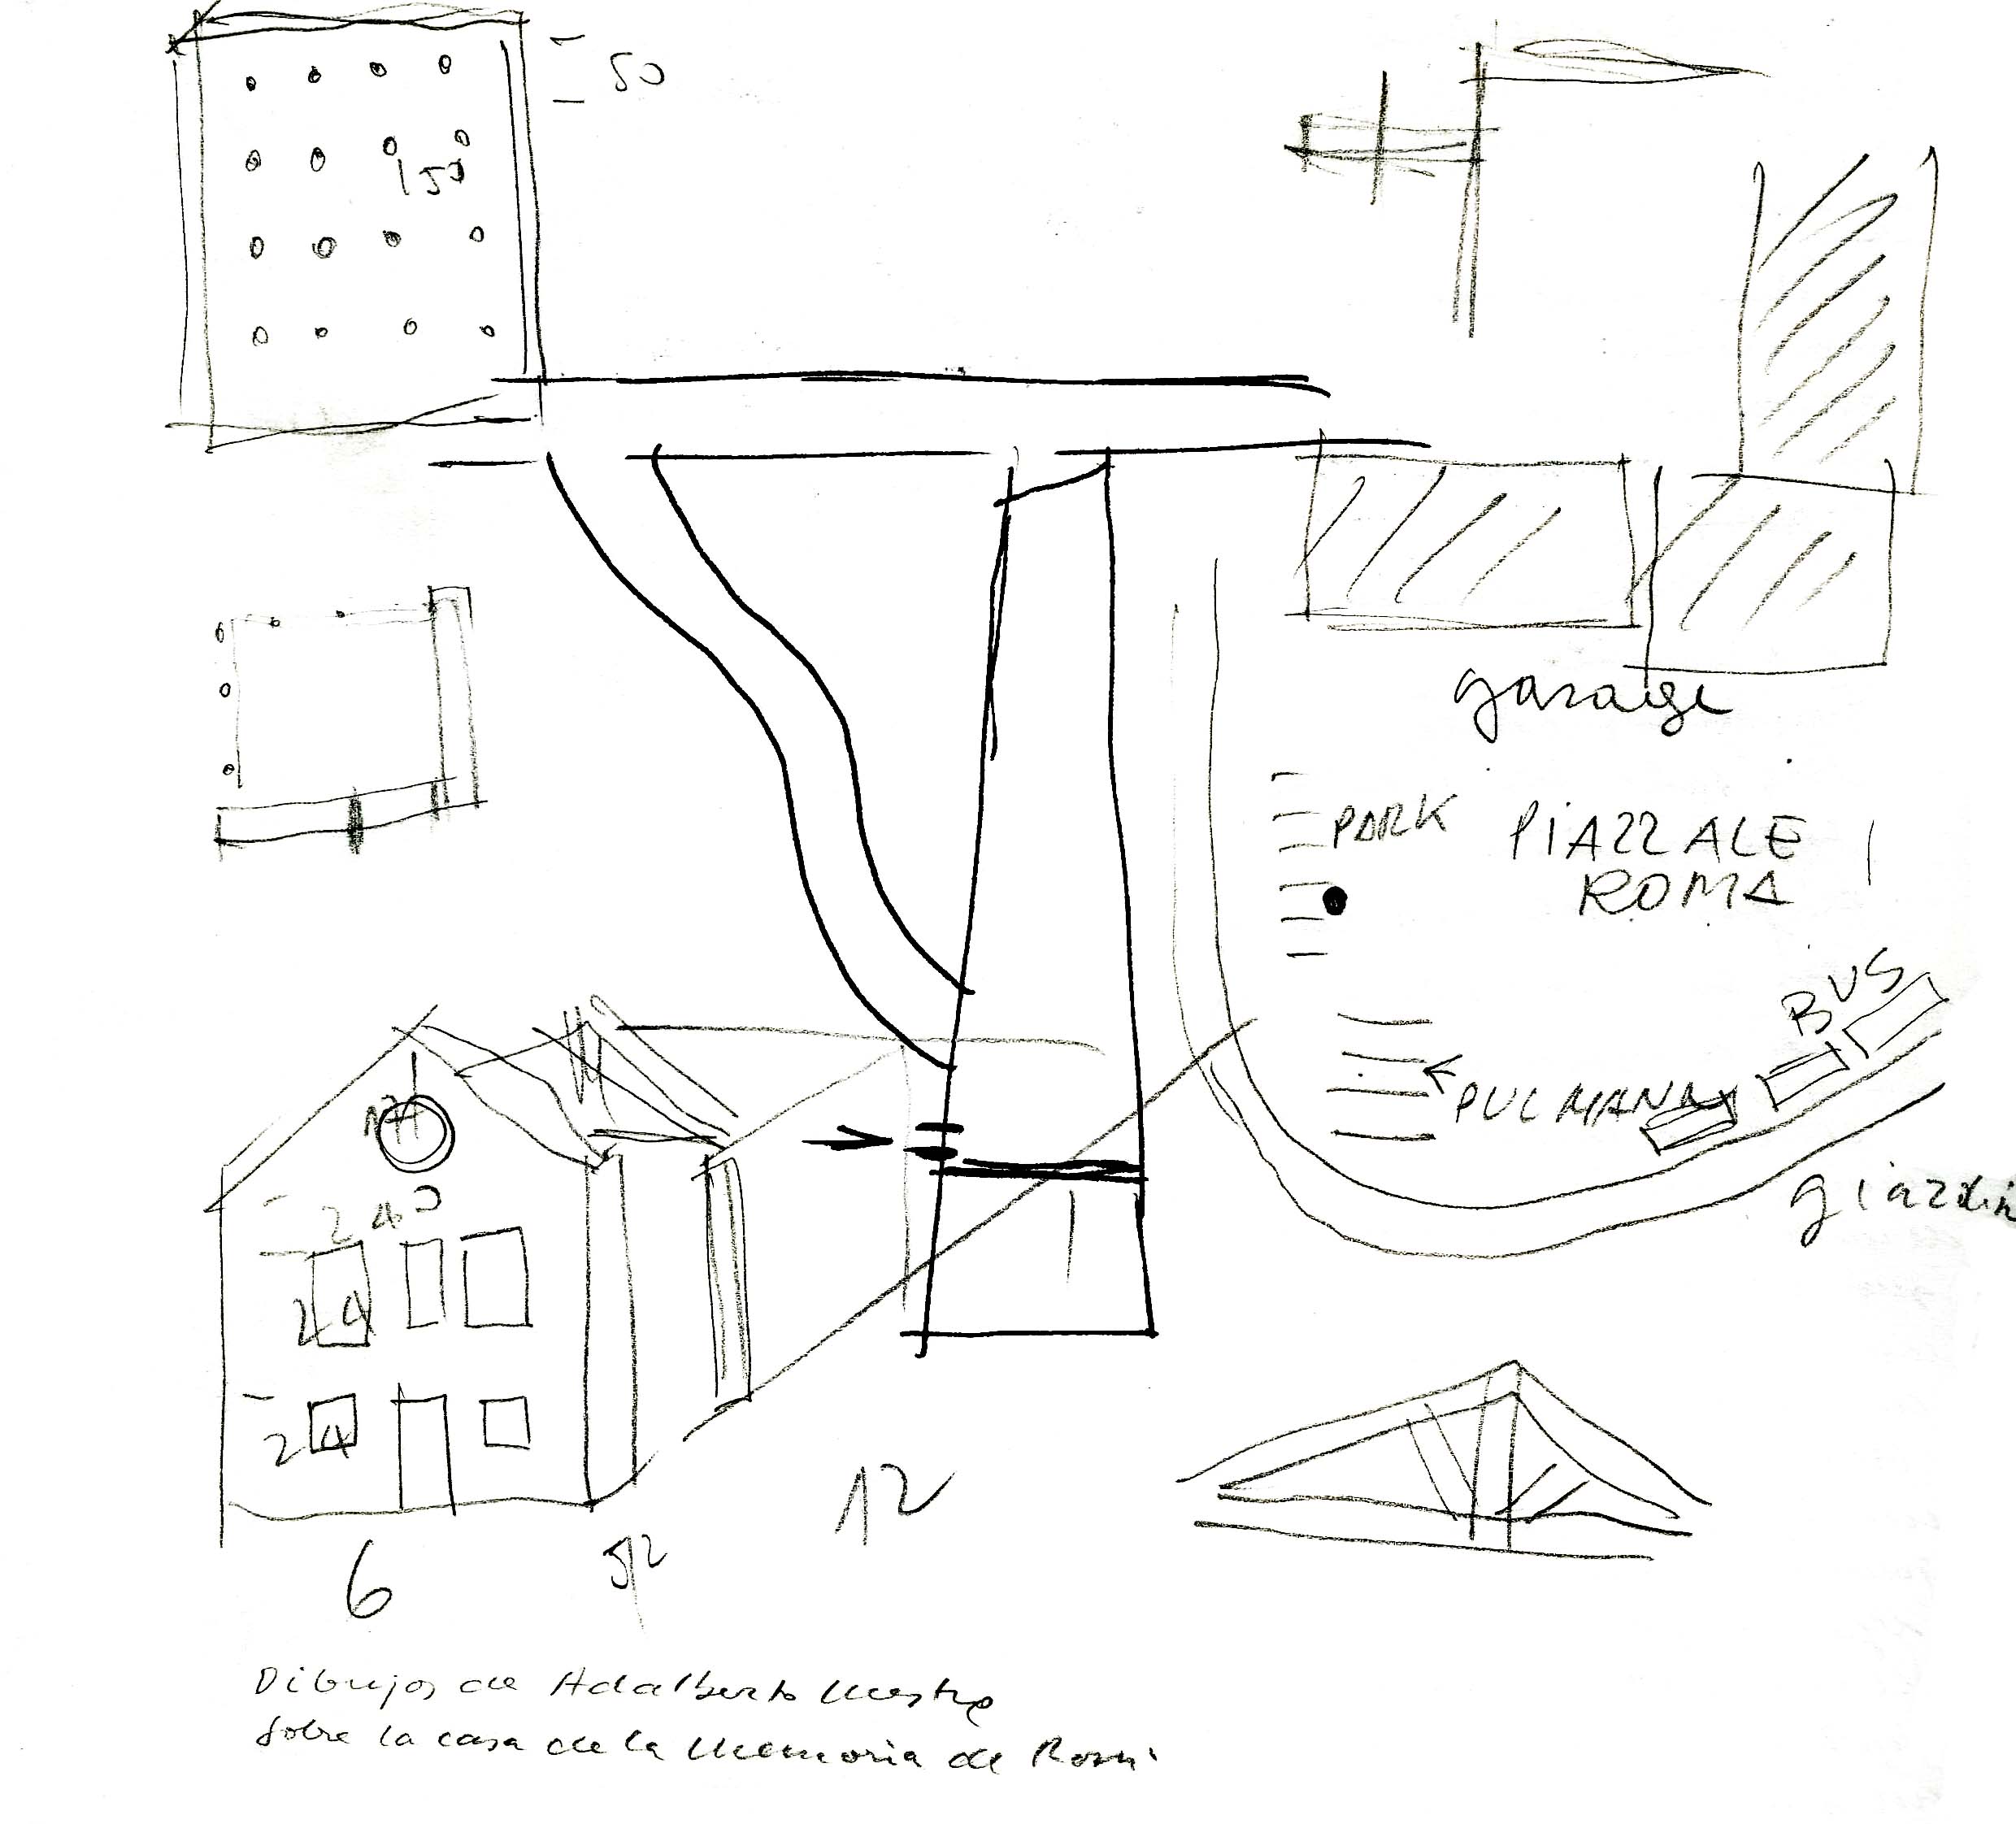 50
150
garage
PARK PIAZZALE
ROMA
BUS
PULMAN
giardin
240
24
24
6
12
Dibujos de Adalberto Mestre
sobre la casa de la Memoria de Rossi